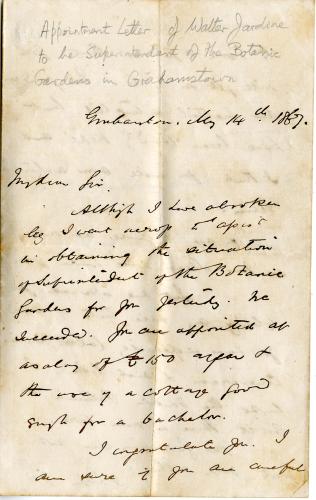 Appointment Letter of Walter Jardine
to be Superintendant of the Botanic
Gardens in Grahamstown
May 14th 1867.
My dear Sir.
Although I have a broken
leg I went across to assist
in obtaining the situation
of Superintendent of the Botanic
Gardens for you yesterday. We
succeeded. You are appointed at
a salary of £150 a year &
the use of a cottage good
enough for a bachelor.
I congratulate you. I
am sure if you are careful